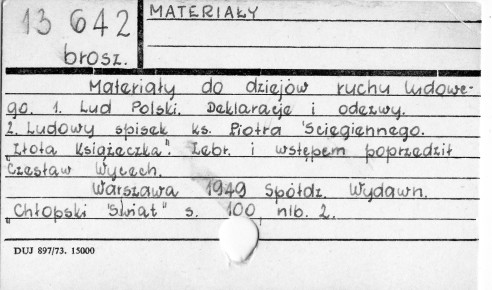 13 642
brosz.
MATERIAŁY
Materiały do dziejów ruchu ludowe-
go. 1. Lud Polski. Deklaracje i odezwy.
2. Ludowy spisek ks. Piotra Ściegiennego.
"Złota Książeczka". Zebr. i wstępem poprzedził
Czesław Wycech.
Warszawa 1949 Spółdz. Wydawn.
"Chłopski Świat" s. 100, nlb. 2.
DUJ 897/73. 15000